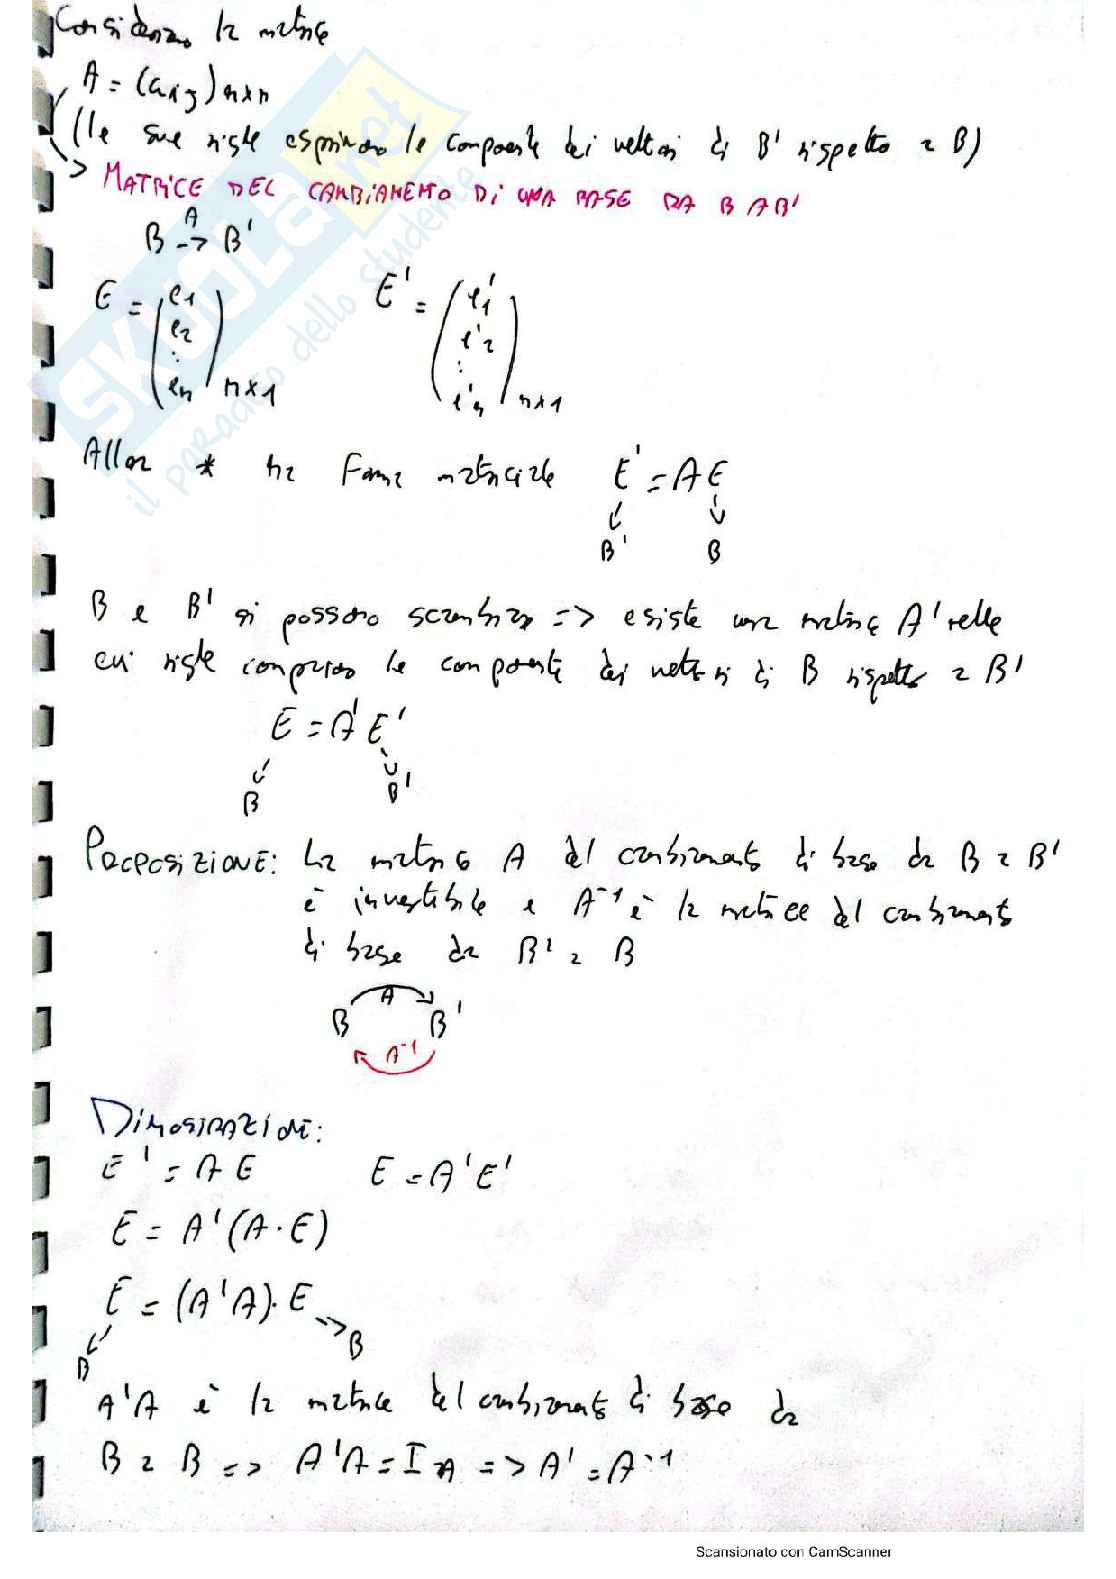 Consideriamo la matrice
A = (aij) n×n
(le sue righe esprimono le componenti dei vettori di B' rispetto a B)
> MATRICE DEL CAMBIAMENTO DI UNA BASE DA B A B'
B -A-> B'
E = (e1 e2 ⋮ en) n×1 E' = (e'1 e'2 ⋮ e'n) n×1
Allora * ha forma matriciale E' = AE
B' B
B e B' si possono scambiare => esiste una matrice A' nelle
cui righe compaiono le componenti dei vettori di B rispetto a B'
E = A'E'
B B'
PROPOSIZIONE: La matrice A del cambiamento di base da B a B'
è invertibile e A⁻¹ è la matrice del cambiamento
di base da B' a B
A
B B'
A⁻¹
DIMOSTRAZIONE:
E' = AE E = A'E'
E = A'(A·E)
E = (A'A)·E
B B
A'A è la matrice del cambiamento di base da
B a B => A'A = In => A' = A⁻¹
SKUOLA.net
il paradiso dello studente
Scansionato con CamScanner